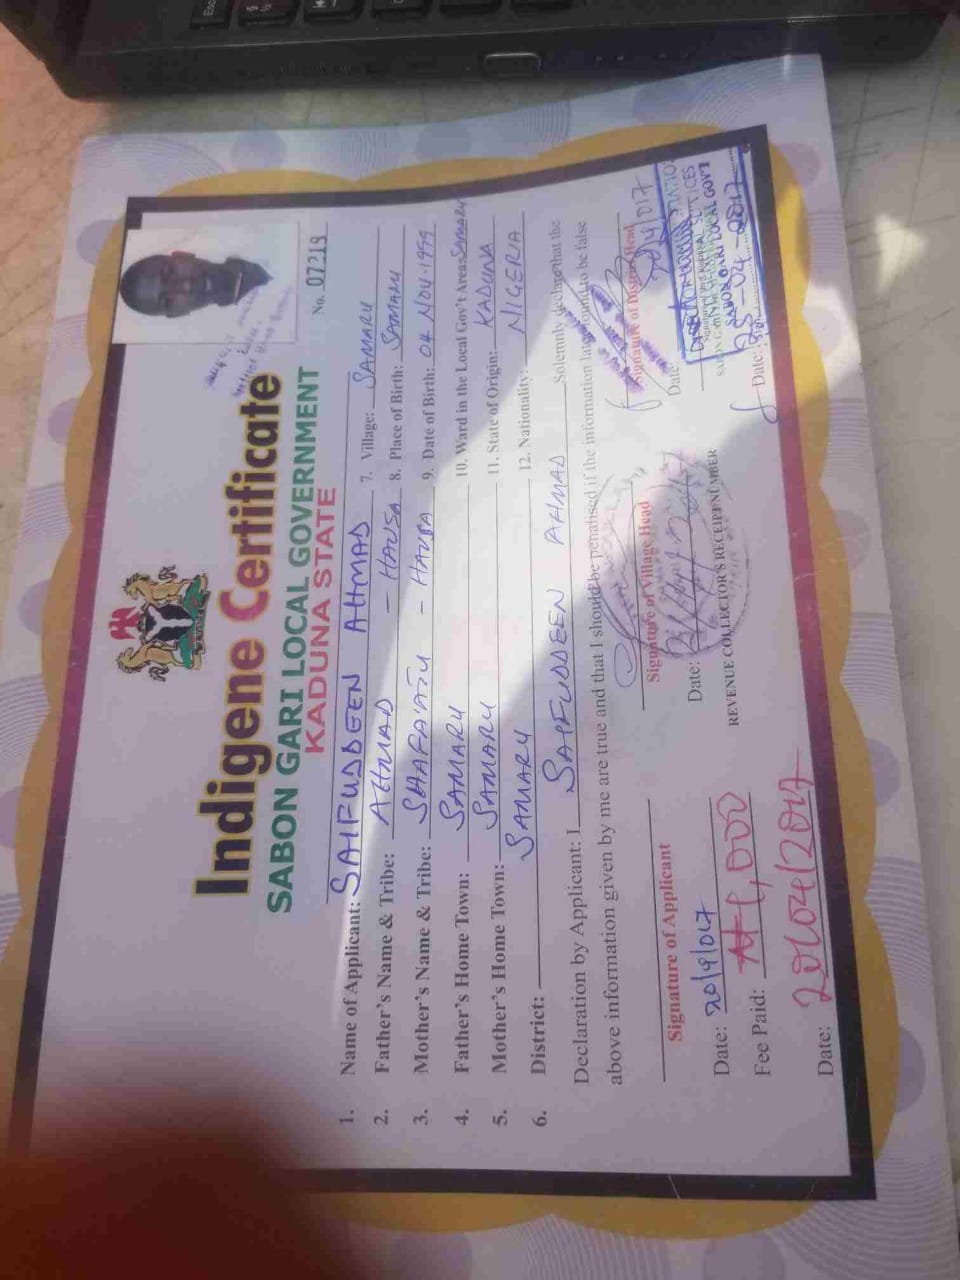 Esc
Indigene Certificate
SABON GARI LOCAL GOVERNMENT
KADUNA STATE
No. 07219
1. Name of Applicant: SAIFUDDEEN AHMAD
2. Father's Name & Tribe: AHMAD - HAUSA
3. Mother's Name & Tribe: SHAFAYATU - HAUSA
4. Father's Home Town: SAMARU
5. Mother's Home Town: SAMARU
6. District: SAMARU
7. Village: SAMARU
8. Place of Birth: SAMARU
9. Date of Birth: 04 NOV. 1999
10. Ward in the Local Gov't Area: SAMARU
11. State of Origin: KADUNA
12. Nationality: NIGERIA
Declaration by Applicant: I SAIFUDDEEN AHMAD Solemnly declare that the
above information given by me are true and that I should be penalised if the information later found to be false
Signature of Applicant
Signature of Village Head
Signature of District Head
Date: 20/9/017
Date:
Date:
Fee Paid:
REVENUE COLLECTOR'S RECEIPT NUMBER
SABON GARI LOCAL GOVT
Date: 20/04/2017
Date: